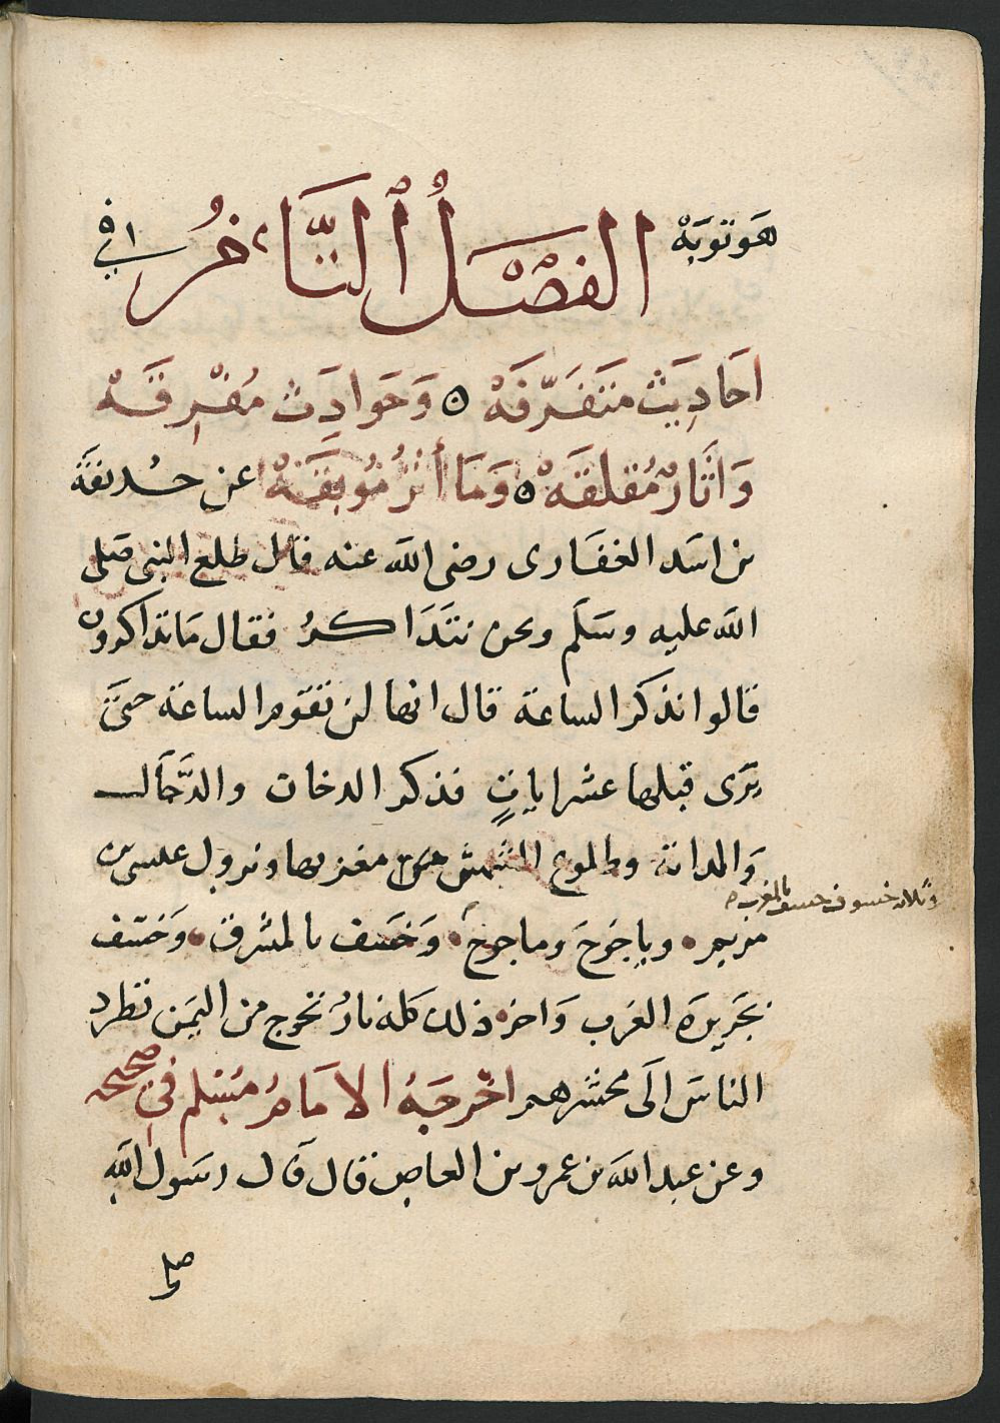 هَوتَوبَهْ الفصْلُ الثَّانى فى
احَادِيَث متَفَرّقَهْ ٥ وَحَوادَث مُفْرِقَهْ
وَاثَارٌ مُقلقَهْ ٥ وَمَا أثرُ مُوبِقَهْ عن حُديفَة
بن اسَد الغفَارى رضى الله عنه قال طلع النبى صَلى
الله عليه وسَلَم ونحن نتَدَاكرُ فقال مَا تذاكرون
قالوا نذكر الساعة قال انها لن تقوم الساعة حتَّى
يَرَى قبلها عشر اياتٍ فذكر الدخان والدَّجَال
وَالدابة وطلوع الشمش من مغربها ونزول عيسى بن
وثلاثة خسوف خسف بالمغرب
مريم • وياجَوجَ وماجوجَ • وَخسَف بالمشرق • وَخسَف
بجَزيرَه العَرب وَاخر ذلك كله نارُ تخرج من اليَمن تطرد
الناسَ الَى محشرهم اخْرجَهُ الامَامُ مُسْلم فى صحيحه
وعن عبد الله بن عمرو بن العاص قال قال رسَول الله
صلى